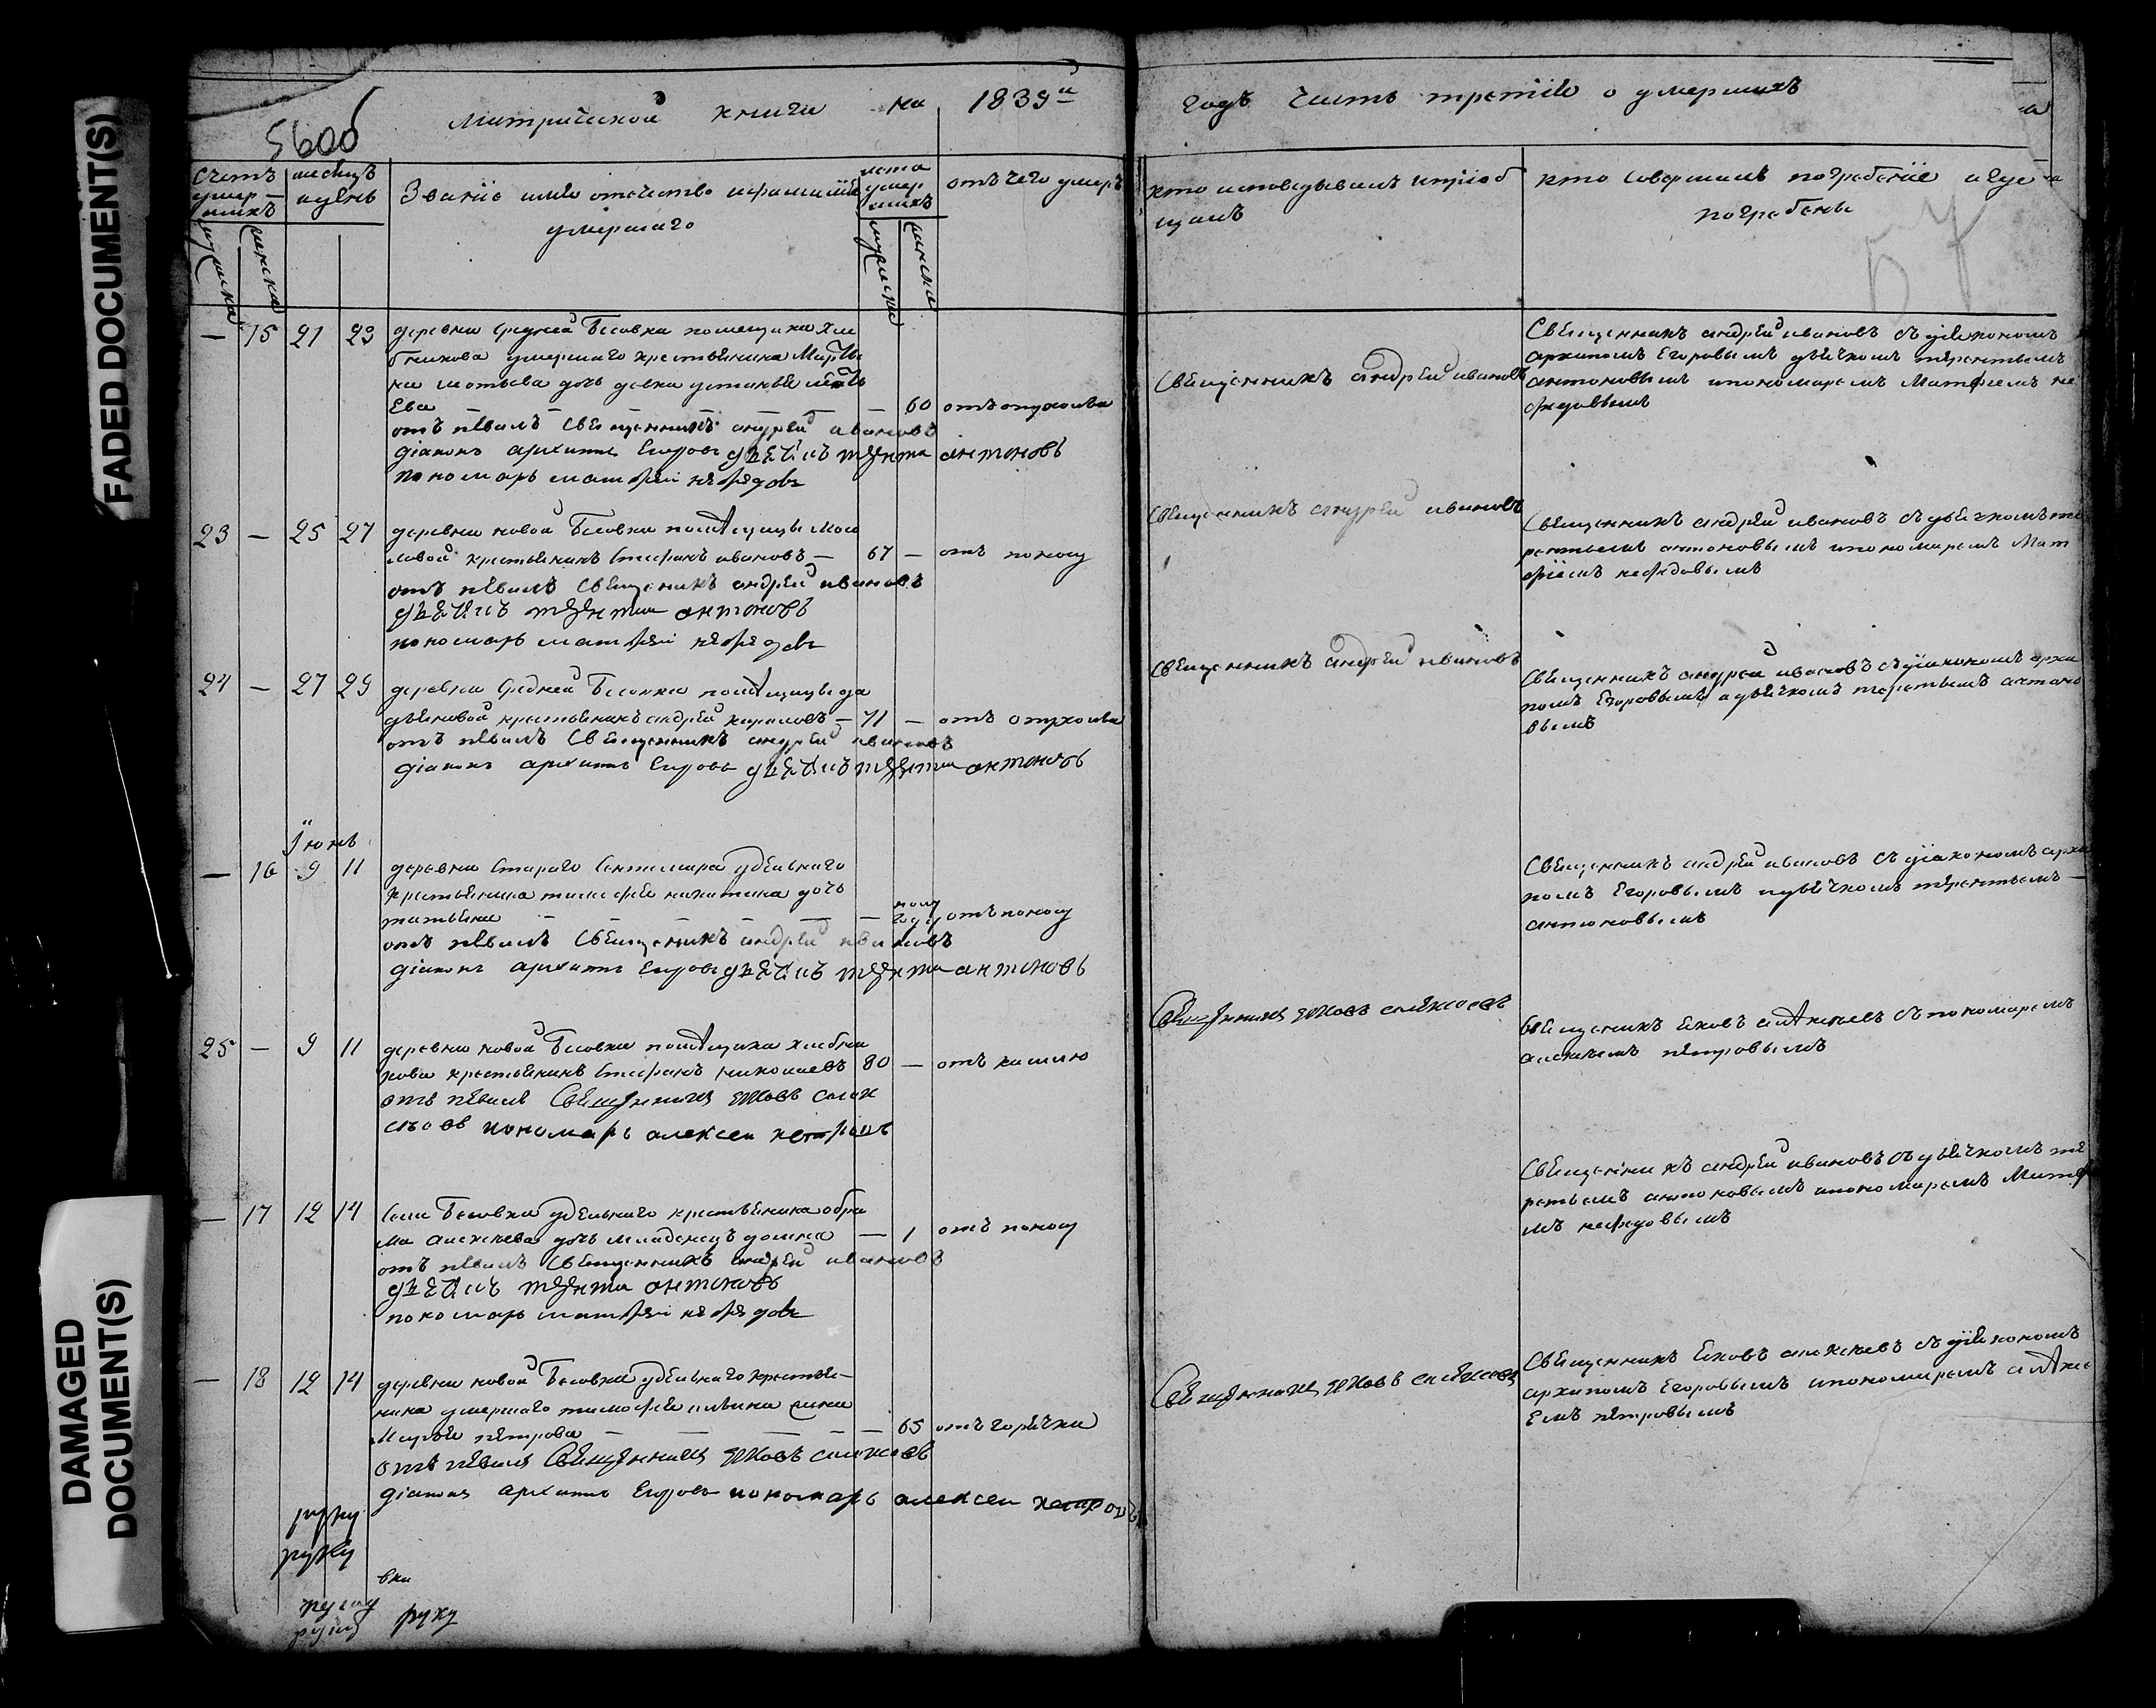 FADED DOCUMENT(S)
DAMAGED
DOCUMENT(S)
560об
Метрической книги на 1839й
годъ Часть третiя о умершихъ
Счетъ умер-шихъ
месяцъ и день
Званiе имя отечество и фамилiя
умершаго
лета умер шихъ
отъ чего умеръ
кто исповедывалъ и прiоб
щалъ
кто совершалъ погребенiе и где
погребены
мужска
женска
мужска
женска
— 15 21 23 деревни Средней Бесовки помещика Хле
бникова умершаго крестьянина
дочь девка
Ева — — — — — — 60 отъ опухоли
отъ певалъ Священникъ андрей ивановъ
дiаконъ архиппъ Егоровъ дьячикъ терента антоновъ
пономарь матфей нефедовъ
Священникъ андрей ивановъ
Священникъ андрей ивановъ съ дiякономъ
архипомъ Егоровымъ дьячкомъ терентьемъ
антоновымъ и пономаремъ Матфеемъ не
федовымъ
23 — 25 27 деревни новой Бесовки помѣщицы
крестьянинъ Стефанъ ивановъ — 67 — отъ поносу
отъ певалъ Священникъ андрей ивановъ
дьячикъ терента антоновъ
пономарь матфей нефедовъ
Священникъ андрей ивановъ
Священникъ андрей ивановъ съ дьячкомъ те
рентьемъ антоновымъ и пономаремъ Мат
фiемъ нефедовымъ
24 — 27 29 деревни Средней Бесовки помѣщицы
крестьянинъ андрей — 71 — отъ опухоли
отъ певалъ Священникъ андрей ивановъ
дiаконъ архиппъ Егоровъ дьячикъ терента антоновъ
Священникъ андрей ивановъ
Священникъ андрей ивановъ съ дiякономъ архи
помъ Егоровымъ и дьячкомъ терентьемъ антоно
вымъ
Iюнь
— 16 9 11 деревни Стараго удельнаго
крестьянина тимофея никитина дочь
татьяна — — — — — полу году отъ поносу
отъ певалъ Священникъ андрей ивановъ
дiаконъ архиппъ Егоровъ дьячикъ терента антоновъ
Священникъ андрей ивановъ съ дiакономъ архи
помъ Егоровымъ и дьячкомъ терентьемъ —
антоновымъ
25 — 9 11 деревни новой Бесовки помѣщика хлебни
кова крестьянинъ Стефанъ николаевъ 80 — отъ кашлю
отъ певалъ Священникъ яковъ алек
сѣевъ пономарь алексеи петровъ
Священникъ яковъ алексеевъ
Священникъ Ековъ алѣксеевъ съ пономаремъ
алексѣемъ петровымъ
— 17 12 14 Села Бесовки удельнаго крестьянина абра
ма алексеева дочь младенецъ домна — 1 отъ поносу
отъ певалъ Священникъ андрей ивановъ
дьячикъ терента антоновъ
пономарь матфей нефедовъ
Священникъ андрей ивановъ съ дьячкомъ те
рентьемъ антоновымъ и пономаремъ Матфе
мъ нефедовымъ
— 18 12 14 деревни новой Бесовки удельнаго крестья-
нина умершаго тимофея жена
Марья петрова — — — — — 65 отъ горячки
отъ певалъ Священникъ яковъ алексеевъ
дiаконъ архиппъ Егоровъ пономарь алексеи петровъ
Священникъ яковъ алексеевъ
Священникъ Ековъ алексеевъ съ дiякономъ
архипомъ Егоровымъ и пономаремъ алѣксе
емъ петровымъ
руку
руку
вки
руку
руку